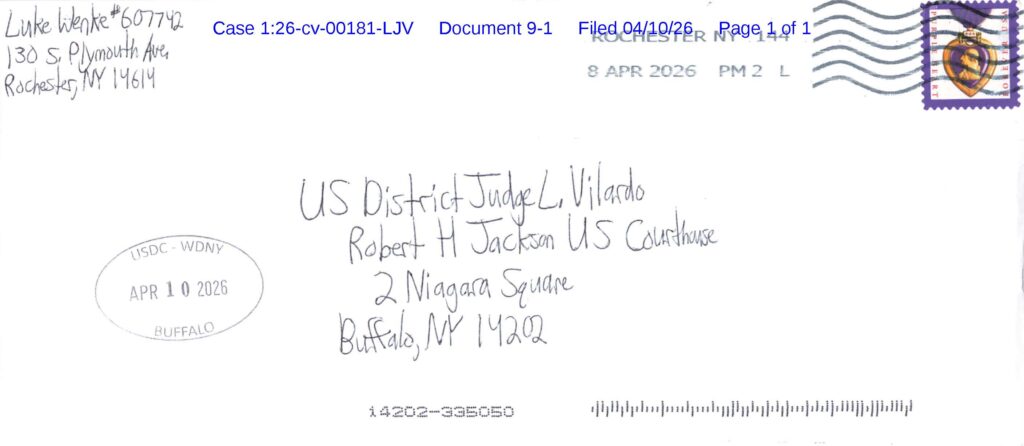 Luke Wenke #607742
130 S. Plymouth Ave.
Rochester, NY 14614
Case 1:26-cv-00181-LJV Document 9-1 Filed 04/10/26 Page 1 of 1
ROCHESTER NY 144
8 APR 2026 PM 2 L
PURPLE HEART
FOREVER USA
US District Judge L. Vilardo
Robert H Jackson US Courthouse
2 Niagara Square
Buffalo, NY 14202
USDC - WDNY
APR 10 2026
BUFFALO
14202-335050